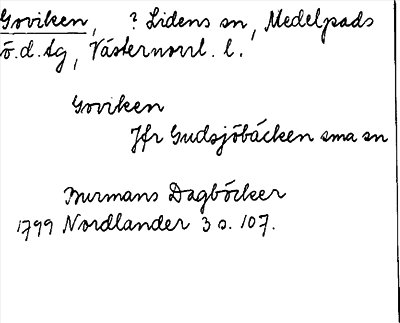 Goviken, ? Lidens sn, Medelpads
ö.d. tg, Västernorrl. l.
Goviken
Jfr Gudsjöbäcken sma sn
Burmans Dagböcker
1799 Nordlander 3 s. 107.